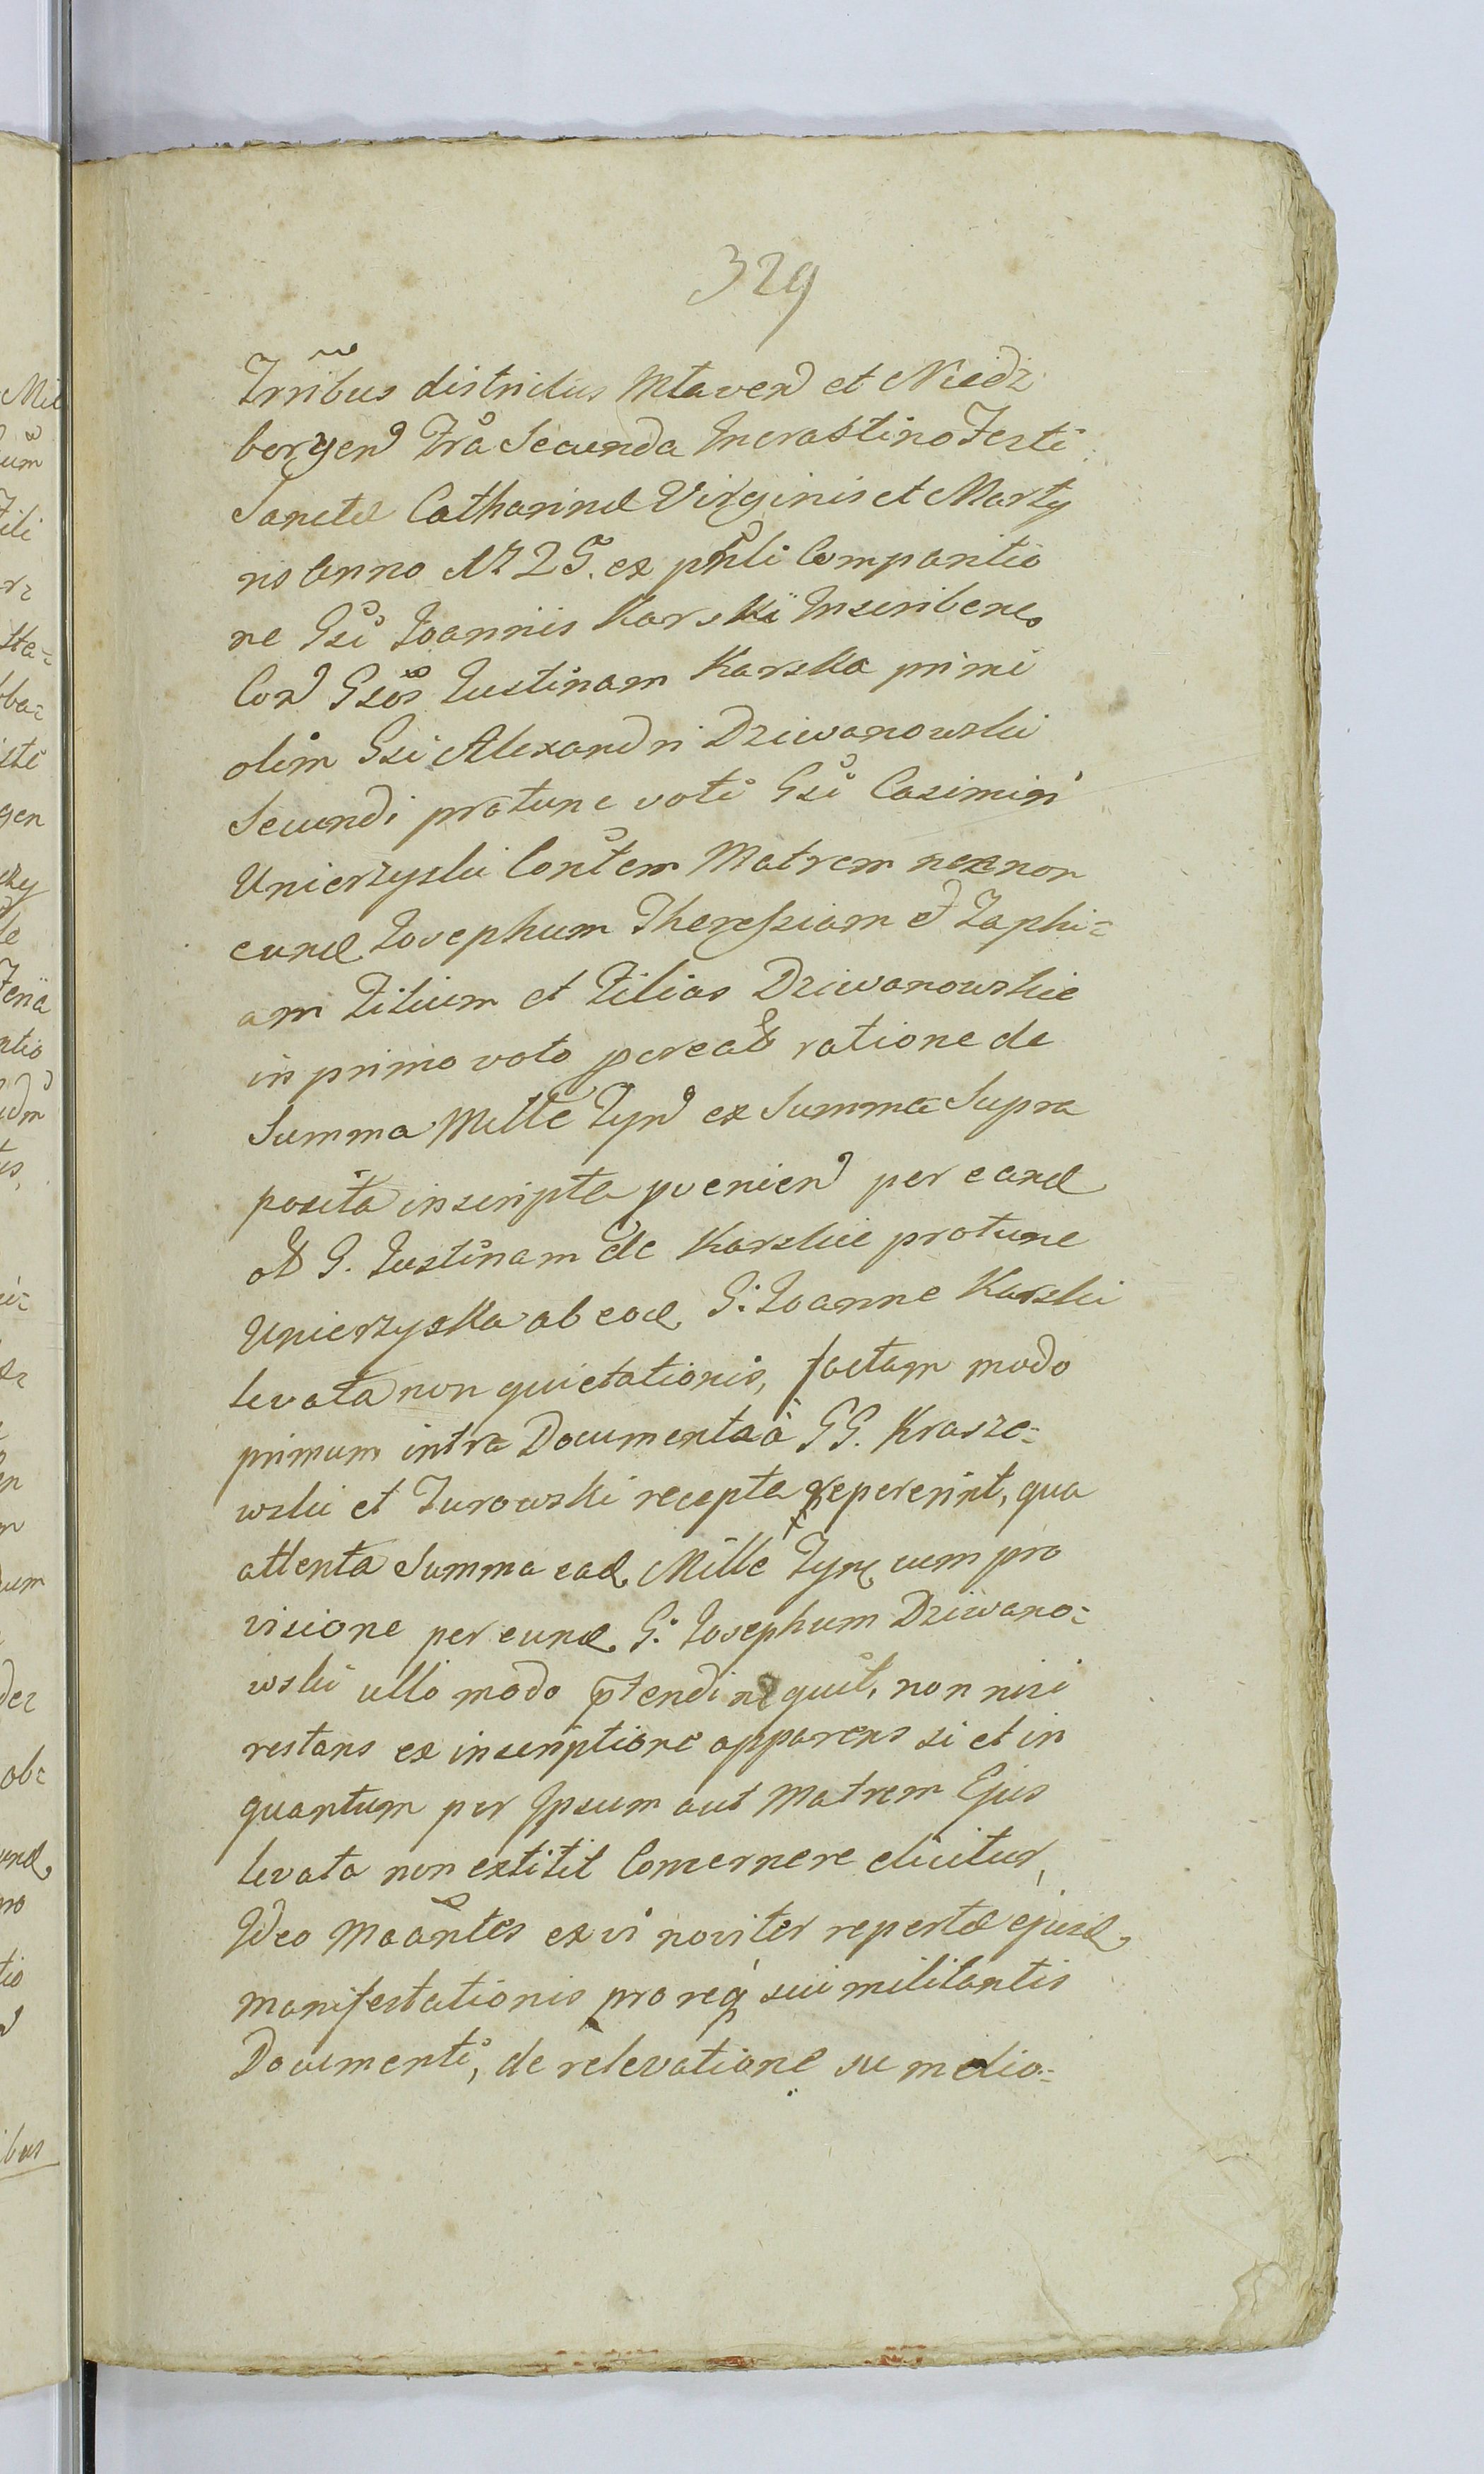 329
Trribus districtus Mlaven et Niedz
borzen Fra Secunda Incrastino Festi
Sanctæ Catharinæ Virginis et Marty
ris Anno 1725. ex pnli Comparitio
ne Gsi Joannis Karski Inscriben
Con Gsos Justinam Karska primi
olim Gsi Alexandri Dziwanowski
Secundi protunc voti Gsi Casimiri
Unierzyski Contem Matrem necnon
eund Josephum Theresiam et Zophi=
am Filium et Filias Dziwanowskie
in primo voto procreat ratione de
Summa Mille Tyn ex Summa Supra
posita inscripta pvenien per eand
G. Justinam de Karskie protunc
Unierzyska ab eod G. Joanne Karski
levata non quietationis, factam modo
primum intra Documenta à GG. Krasze=
wski et Turowski recepta repererint, qua
attenta Summa ead Mille Tyn cum pro
visione per eund G. Josephum Dziwano=
wski ullo modo ptendi nequit, non nisi
restans ex inscriptione apparens si et in
quantum per Ipsum aut Matrem Ejus
levata non extitit Concernere dicitur,
Ideo Maantes ex vi noviter repertæ ejusd
Manifestationis pro req sui militantis
Documenti, de relevatione su medio=